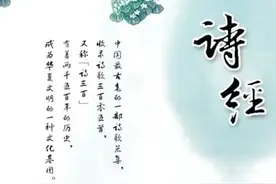 诗经
中国最古老的一部诗歌总集，
收录诗歌三百零五首，
又称「诗三百」
有着两千五百年的历史，
成为华夏文明的一种文化基因。